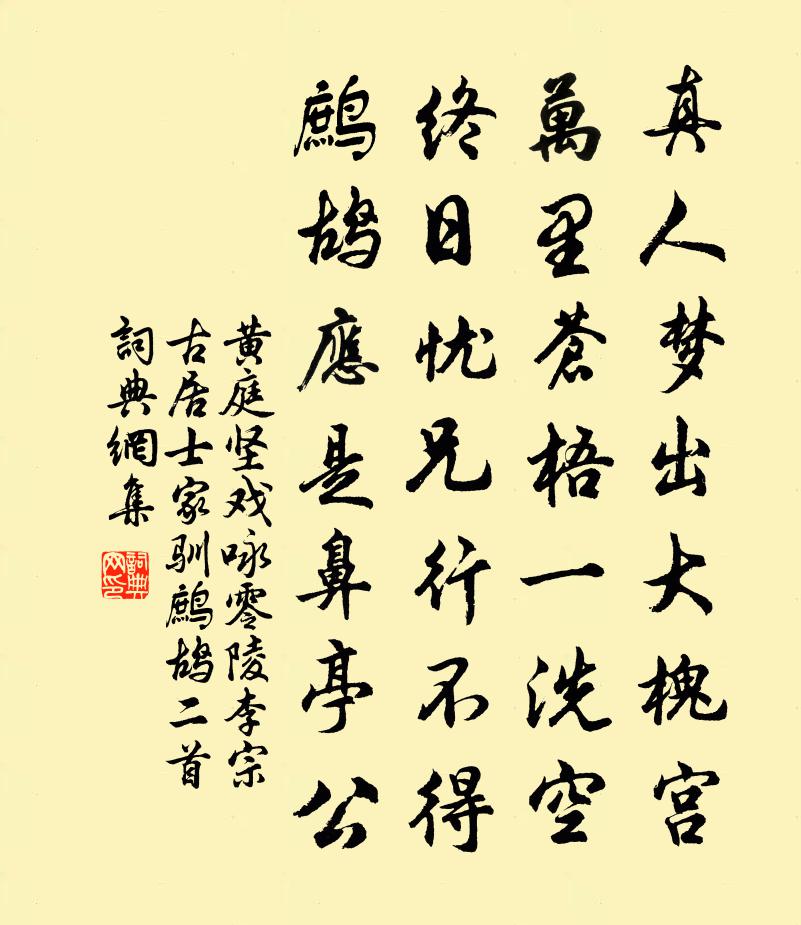 真人梦出大槐宫
萬里蒼梧一洗空
终日忧兄行不得
鷓鸪應是鼻亭公
黄庭坚戏咏零陵李宗
古居士家驯鷓鸪二首
詞典網集
詞典网印